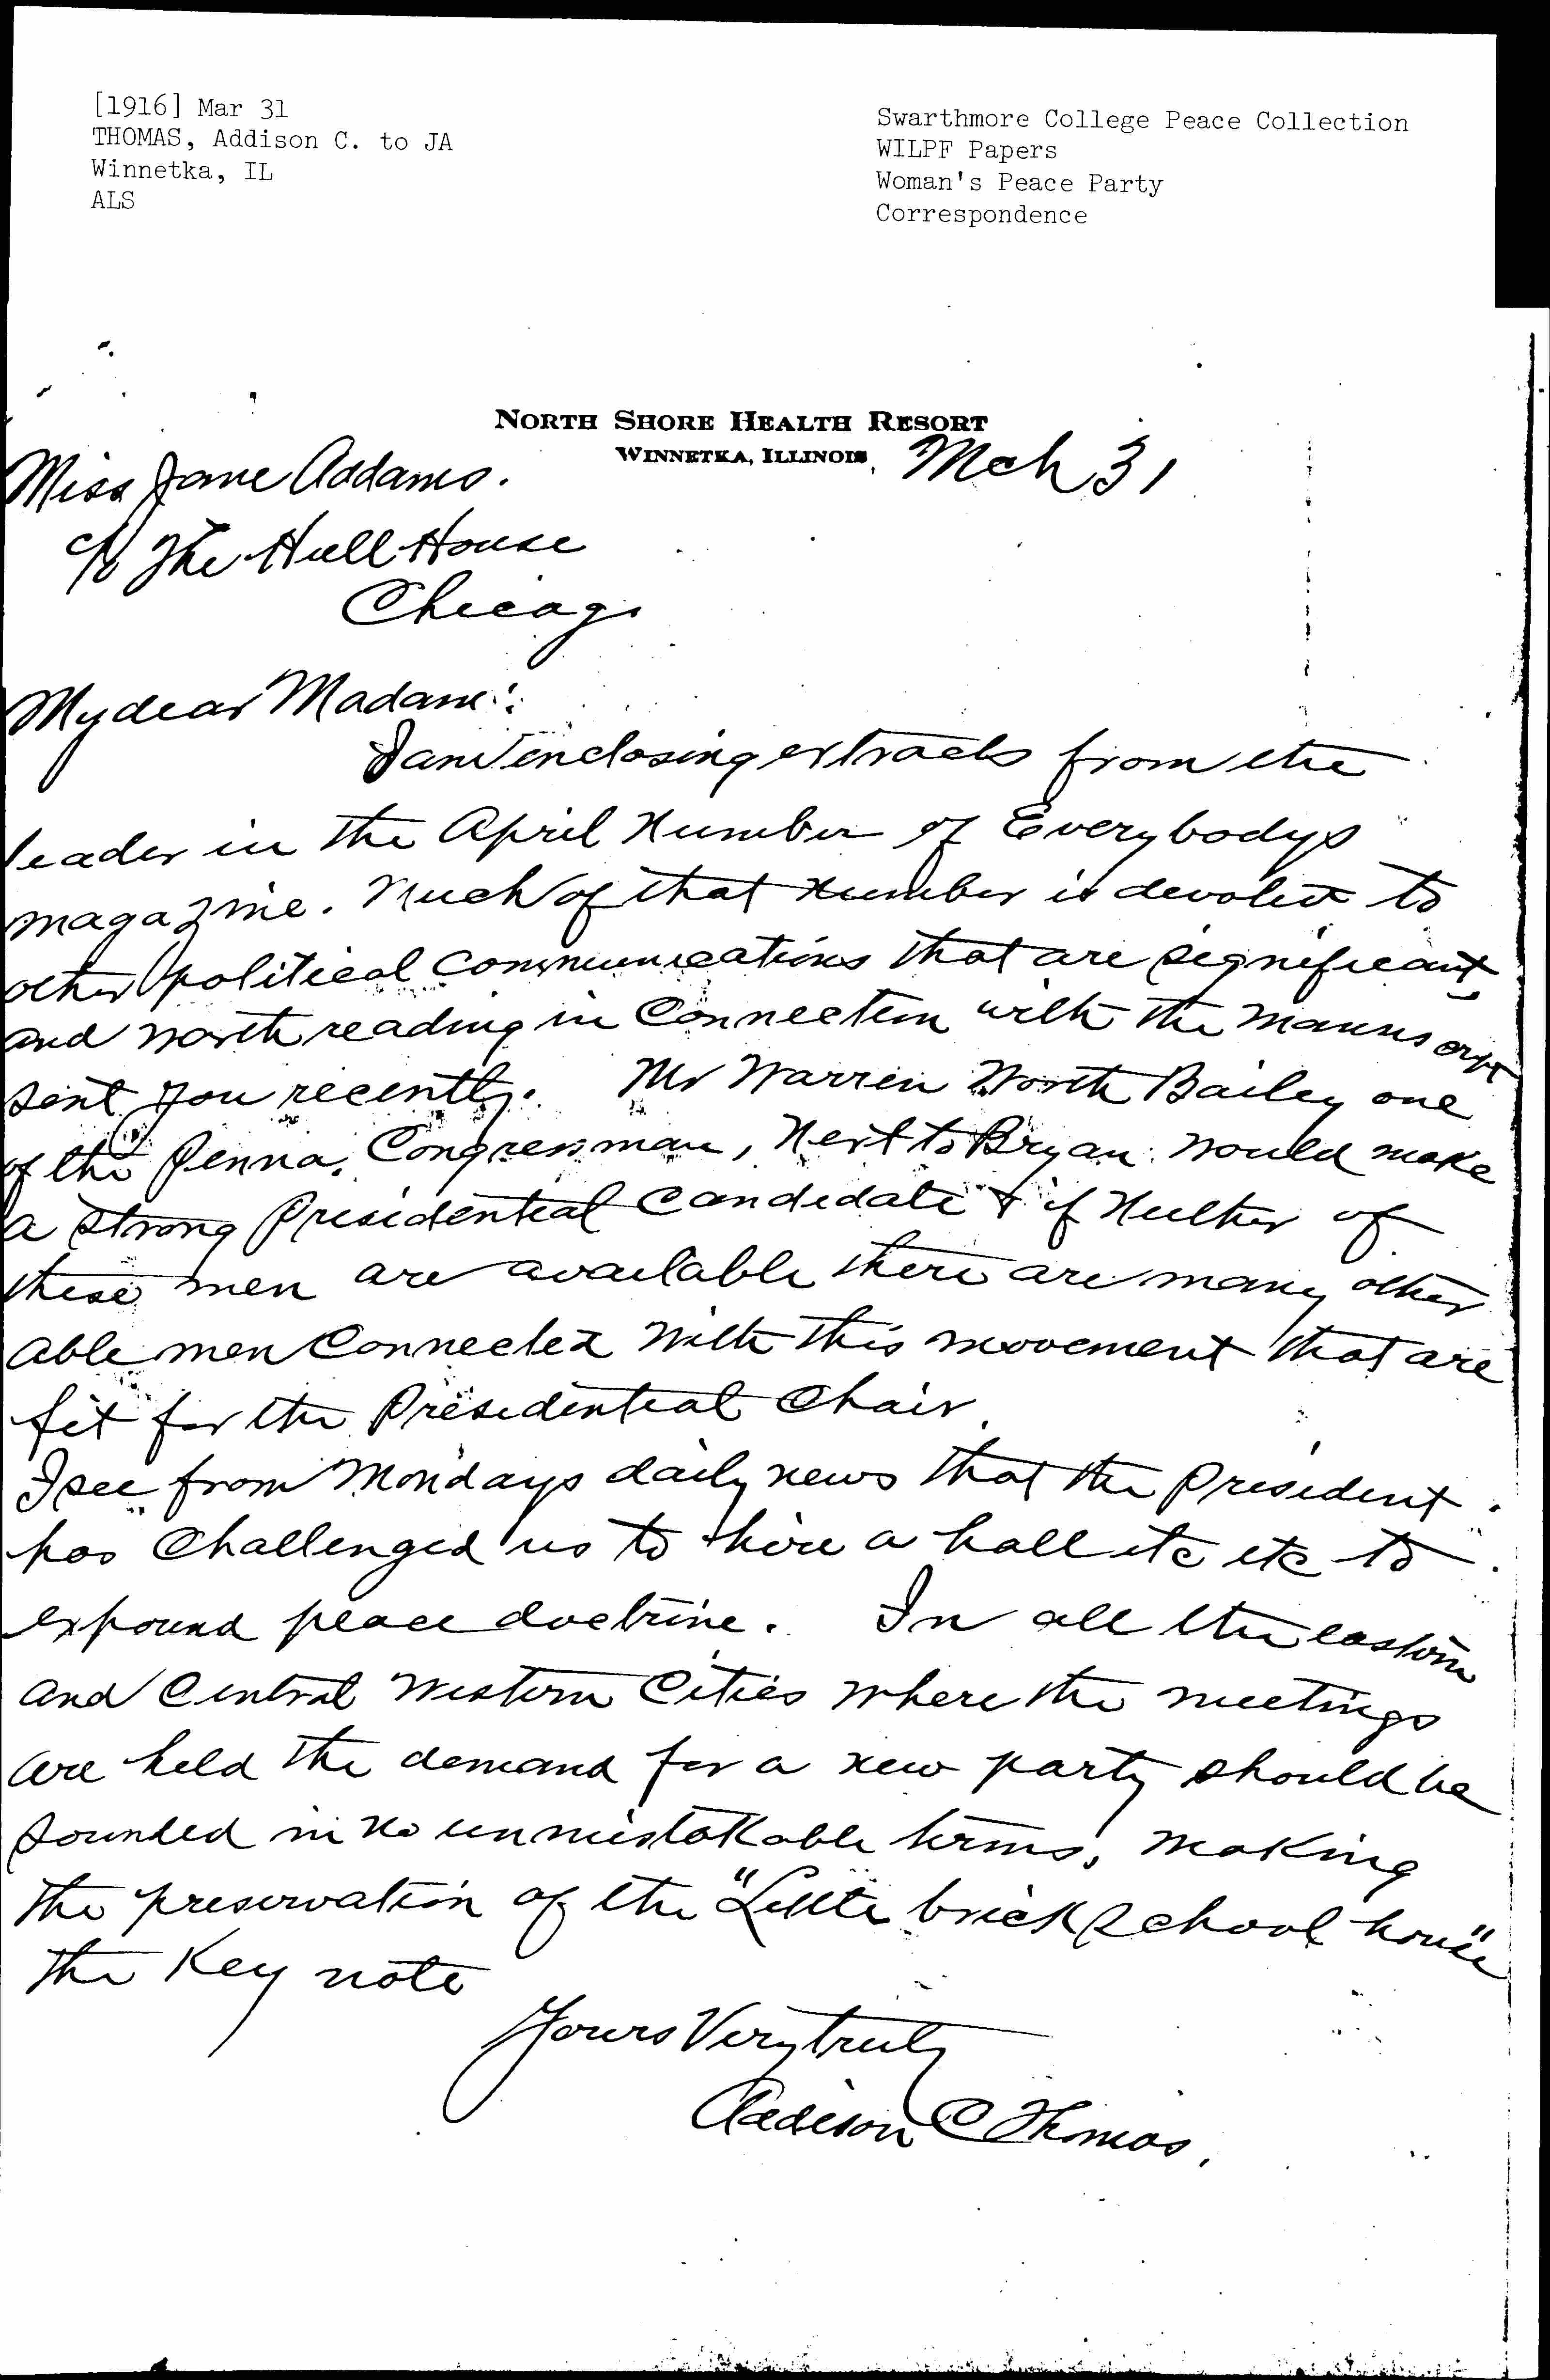 [1916] Mar 31
THOMAS, Addison C. to JA
Winnetka, IL
ALS
Swarthmore College Peace Collection
WILPF Papers
Woman's Peace Party
Correspondence
NORTH SHORE HEALTH RESORT
WINNETKA, ILLINOIS, Mch 31
Miss Jane Addams.
c/o The Hull House
Chicago
My dear Madam:
I am enclosing extracts from the
leader in the April Number of Everybodys
magazine. Much of that number is devoted to
other political communications that are significant,
and worth reading in Connection with the manuscrpt
sent you recently. Mr Warren Worth Bailey one
of the Penna. Congressman, Next to Bryan would make
a strong Presidential Candidate & if Neither of
these men are available there are many other
able men Connected with this movement that are
fit for the Presidential Chair.
I see from Mondays daily news that the President
has Challenged us to hire a hall etc etc to
expound peace doctrine. In all the eastern
and Central Western Cities where the meetings
are held the demand for a new party should be
sounded in no unmistakable terms, making
the preservation of the "Little brick school house"
the Key note
Yours Very truly
Addison C Thomas.